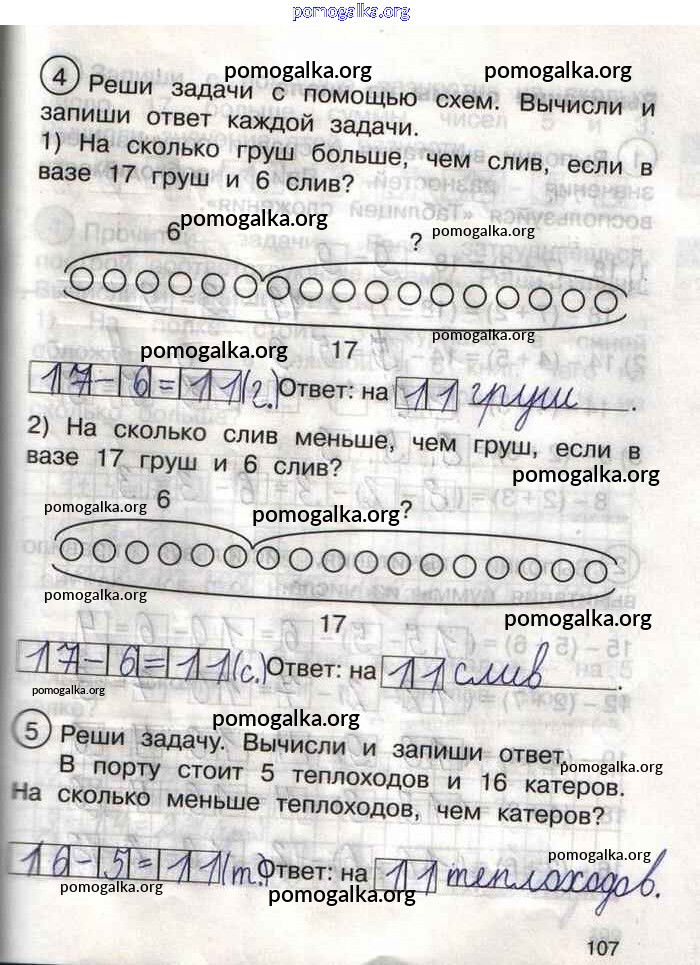 pomogalka.org
pomogalka.org pomogalka.org
4 Реши задачи с помощью схем. Вычисли и
запиши ответ каждой задачи.
1) На сколько груш больше, чем слив, если в
вазе 17 груш и 6 слив?
pomogalka.org
6 ? pomogalka.org
17 pomogalka.org
pomogalka.org
17-6=11(г.) Ответ: на 11 груш.
2) На сколько слив меньше, чем груш, если в
вазе 17 груш и 6 слив?
pomogalka.org
pomogalka.org 6 pomogalka.org ?
pomogalka.org
17 pomogalka.org
17-6=11(с.) Ответ: на 11 слив.
pomogalka.org
pomogalka.org
5 Реши задачу. Вычисли и запиши ответ.
В порту стоит 5 теплоходов и 16 катеров.
pomogalka.org
На сколько меньше теплоходов, чем катеров?
pomogalka.org
16-5=11(т.) Ответ: на 11 теплоходов.
pomogalka.org pomogalka.org
107